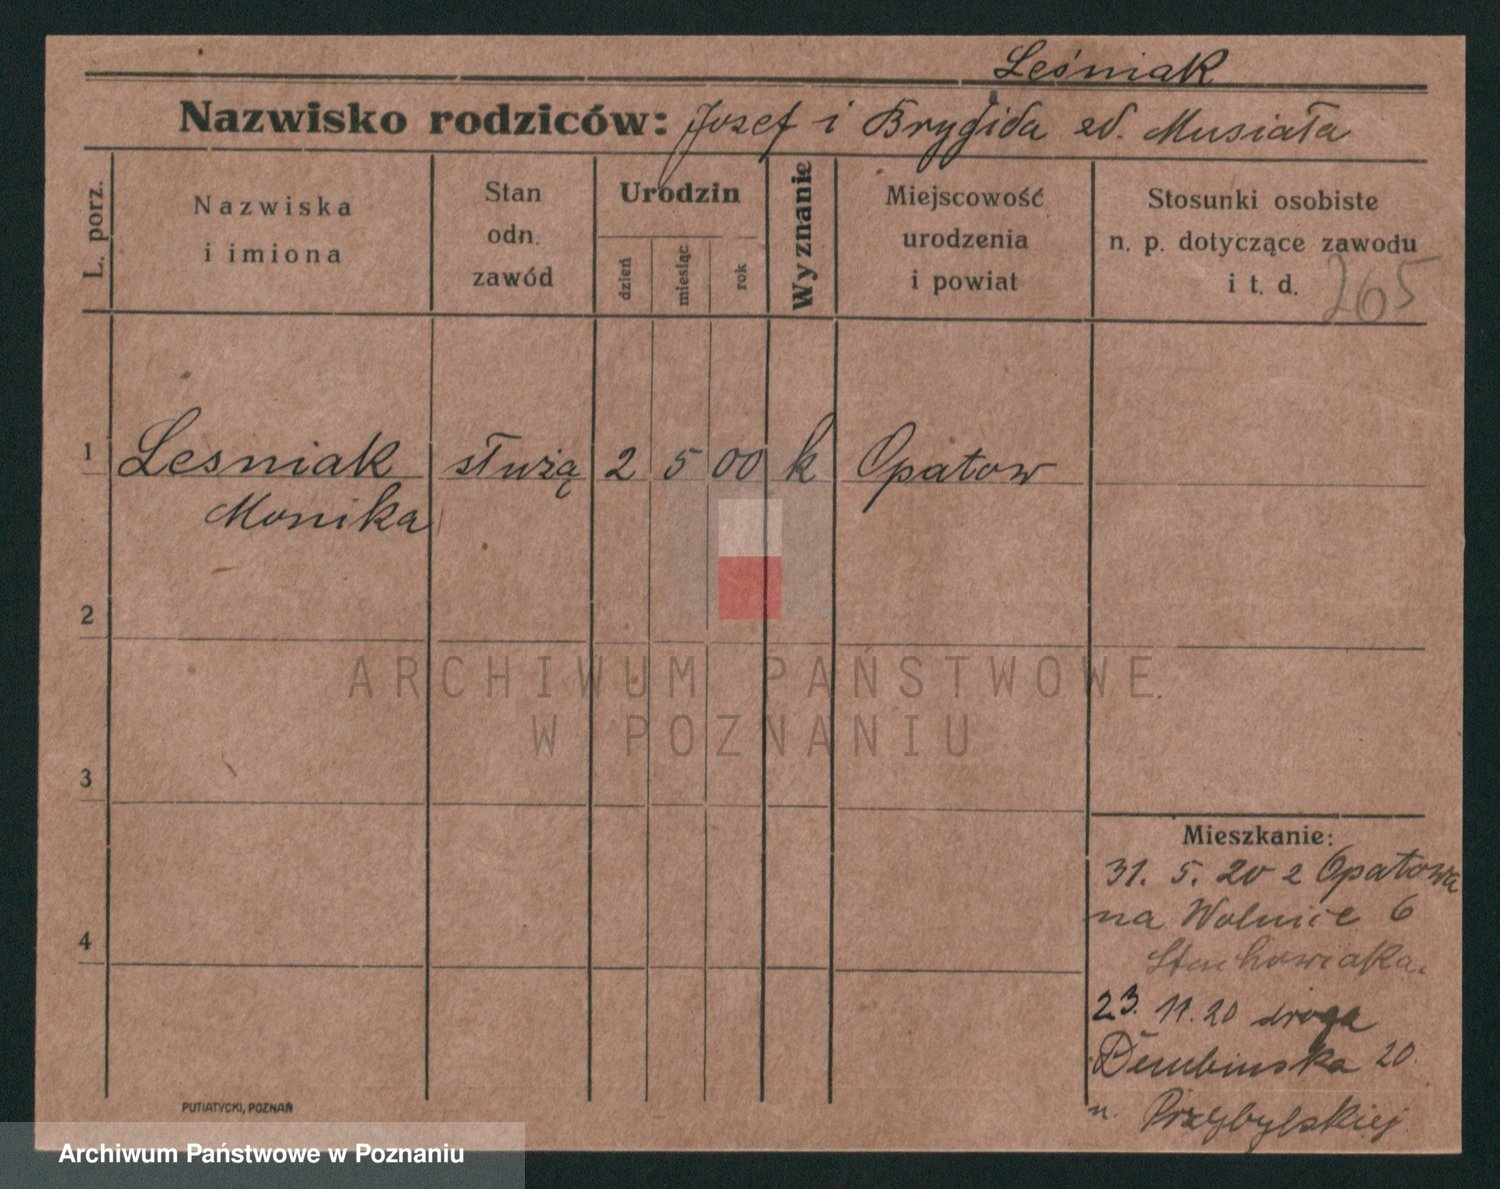 Leśniak
Nazwisko rodziców: Josef i Brygida zd. Musiała
L. porz.
Nazwiska
i imiona
Stan
odn.
zawód
Urodzin
dzień
miesiąc
rok
Wyznanie
Miejscowość
urodzenia
i powiat
Stosunki osobiste
n. p. dotyczące zawodu
i t. d.
265
1 Lesniak służą 2 5 00 k Opatow
Monika
2
ARCHIWUM PAŃSTWOWE
W POZNANIU
3
Mieszkanie:
31. 5. 20 z Opatowa
na Wolnice 6
Stachowiaka.
4
23. 11. 20 droga
Dembinska 20.
u. Przybylskiej
PUTIATYCKI, POZNAŃ
Archiwum Państwowe w Poznaniu